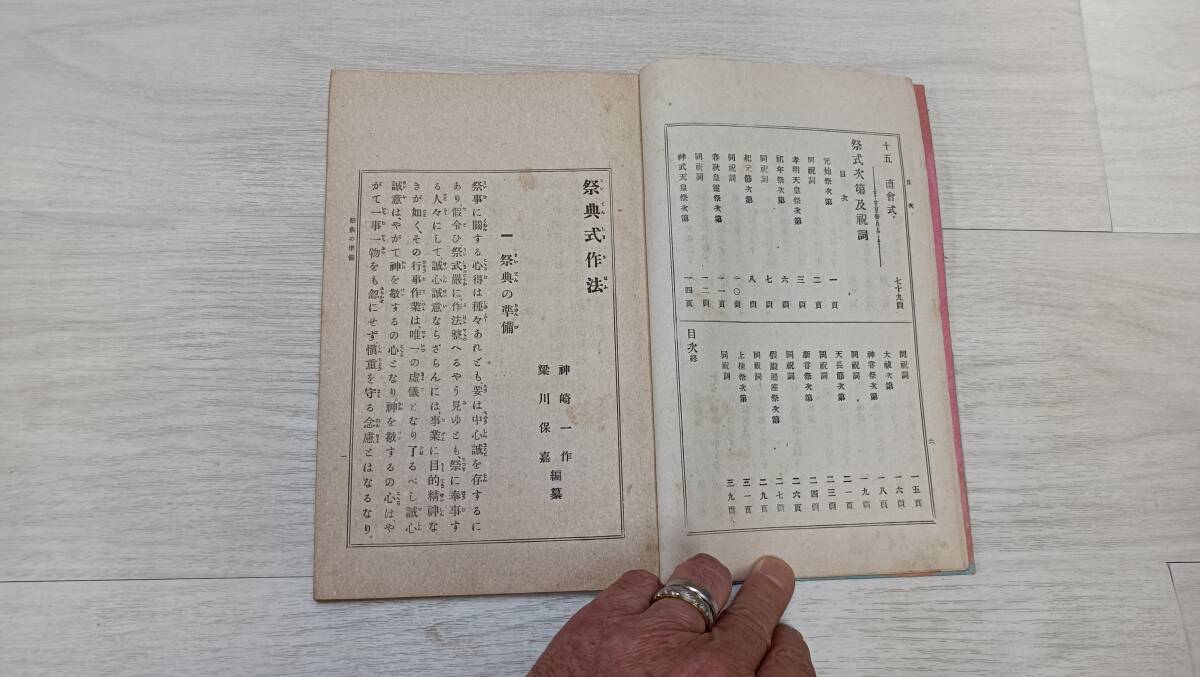 目次
六
十五 直會式 七十九頁
祭式次第及祝詞
目次
元始祭次第 一頁
同祝詞 二頁
孝明天皇祭次第 三頁
祈年祭次第 六頁
同祝詞 七頁
紀元節次第 八頁
同祝詞 一〇頁
春秋皇靈祭次第 一一頁
同祝詞 一二頁
神武天皇祭次第 一四頁
同祝詞 一五頁
大祓次第 一六頁
神嘗祭次第 一八頁
同祝詞 一九頁
天長節次第 二一頁
同祝詞 二三頁
新嘗祭次第 二四頁
同祝詞 二六頁
假殿遷座祭次第 二七頁
同祝詞 二九頁
上棟祭次第 三一頁
同祝詞 三九頁
目次終
祭典式作法
神崎一作
梁川保嘉 編纂
一 祭典の準備
祭事に關する心得は種々あれども、要は中心誠を存するに
あり、假令ひ祭式嚴に、作法整へるやう見ゆとも、祭に奉事す
る人々にして、誠心誠意ならざらんには、事業に目的精神な
きが如く、その行事作業は、唯一の虚儀となり了るべし、誠心
誠意は、やがて神を敬するの心となり、神を敬するの心は、や
がて一事一物をも忽にせず愼重を守る念慮とはなるなり。
祭典の準備
一